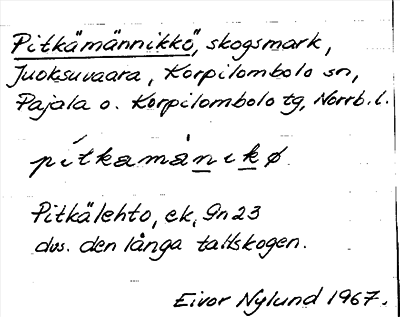 Pitkämännikkö, skogsmark,
Juoksuvaara, Korpilombolo sn,
Pajala o. Korpilombolo tg, Norrb. l.
pítkamànikø
Pitkälehto, ek, Gn 23
dvs. den långa tallskogen.
Eivor Nylund 1967.